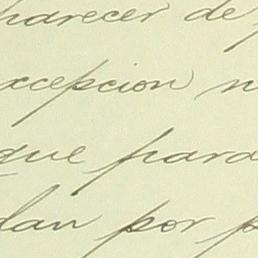 parecer de
xcepcion n
que para
dan por p